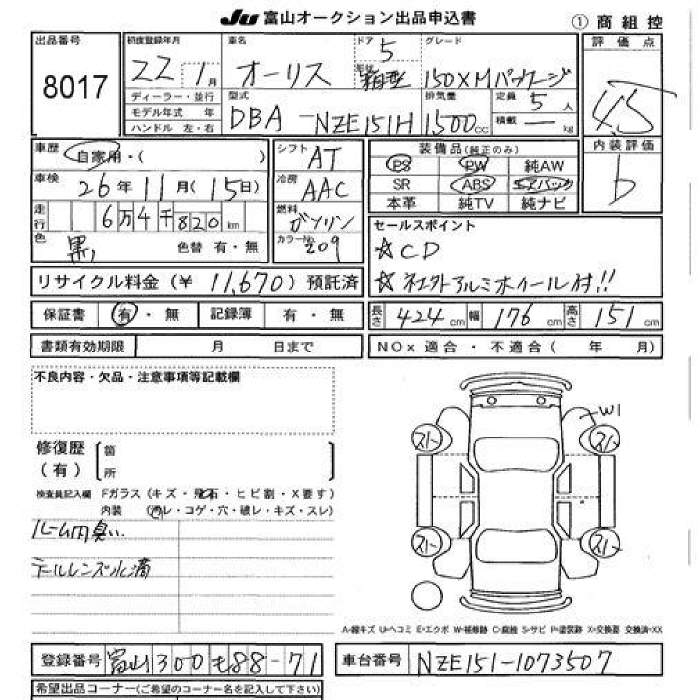 JU 富山オークション出品申込書 ① 商 組 控
出品番号 8017
初度登録年月 22 1月
車名 オーリス
ドア 5
形状 箱型
グレード 150XMパッケージ
評価点 4.5
ディーラー・並行
モデル年式 年
ハンドル 左・右
型式 DBA-NZE151H
排気量 1500cc
定員 5人
積載 — kg
内装評価 b
車歴 自家用・( )
車検 26年11月(15日)
走行 6万4千820km
色 黒 色替 有・無
シフト AT
冷房 AAC
燃料 ガソリン
カラーNo. 209
装備品(純正のみ)
PS PW 純AW
SR ABS エアバック
本革 純TV 純ナビ
セールスポイント
☆CD
☆社外アルミホイール付!!
リサイクル料金(¥ 11,670)預託済
保証書 有・無 記録簿 有・無
長さ 424cm 幅 176cm 高さ 151cm
書類有効期限 月 日まで
NOx 適合・不適合( 年 月)
不良内容・欠品・注意事項等記載欄
修復歴(有) 箇所
検査員記入欄 Fガラス(キズ・飛石・ヒビ割・X要す)
内装(汚レ・コゲ・穴・破レ・キズ・スレ)
ルーム内臭い
テールレンズ水滴
W1
スレ スレ
スレ スレ
A=線キズ U=ヘコミ E=エクボ W=補修跡 C=腐蝕 S=サビ P=塗装跡 X=交換要 交換済=XX
登録番号 富山300も88-71
車台番号 NZE151-1073507
希望出品コーナー(ご希望のコーナー名を記入して下さい)